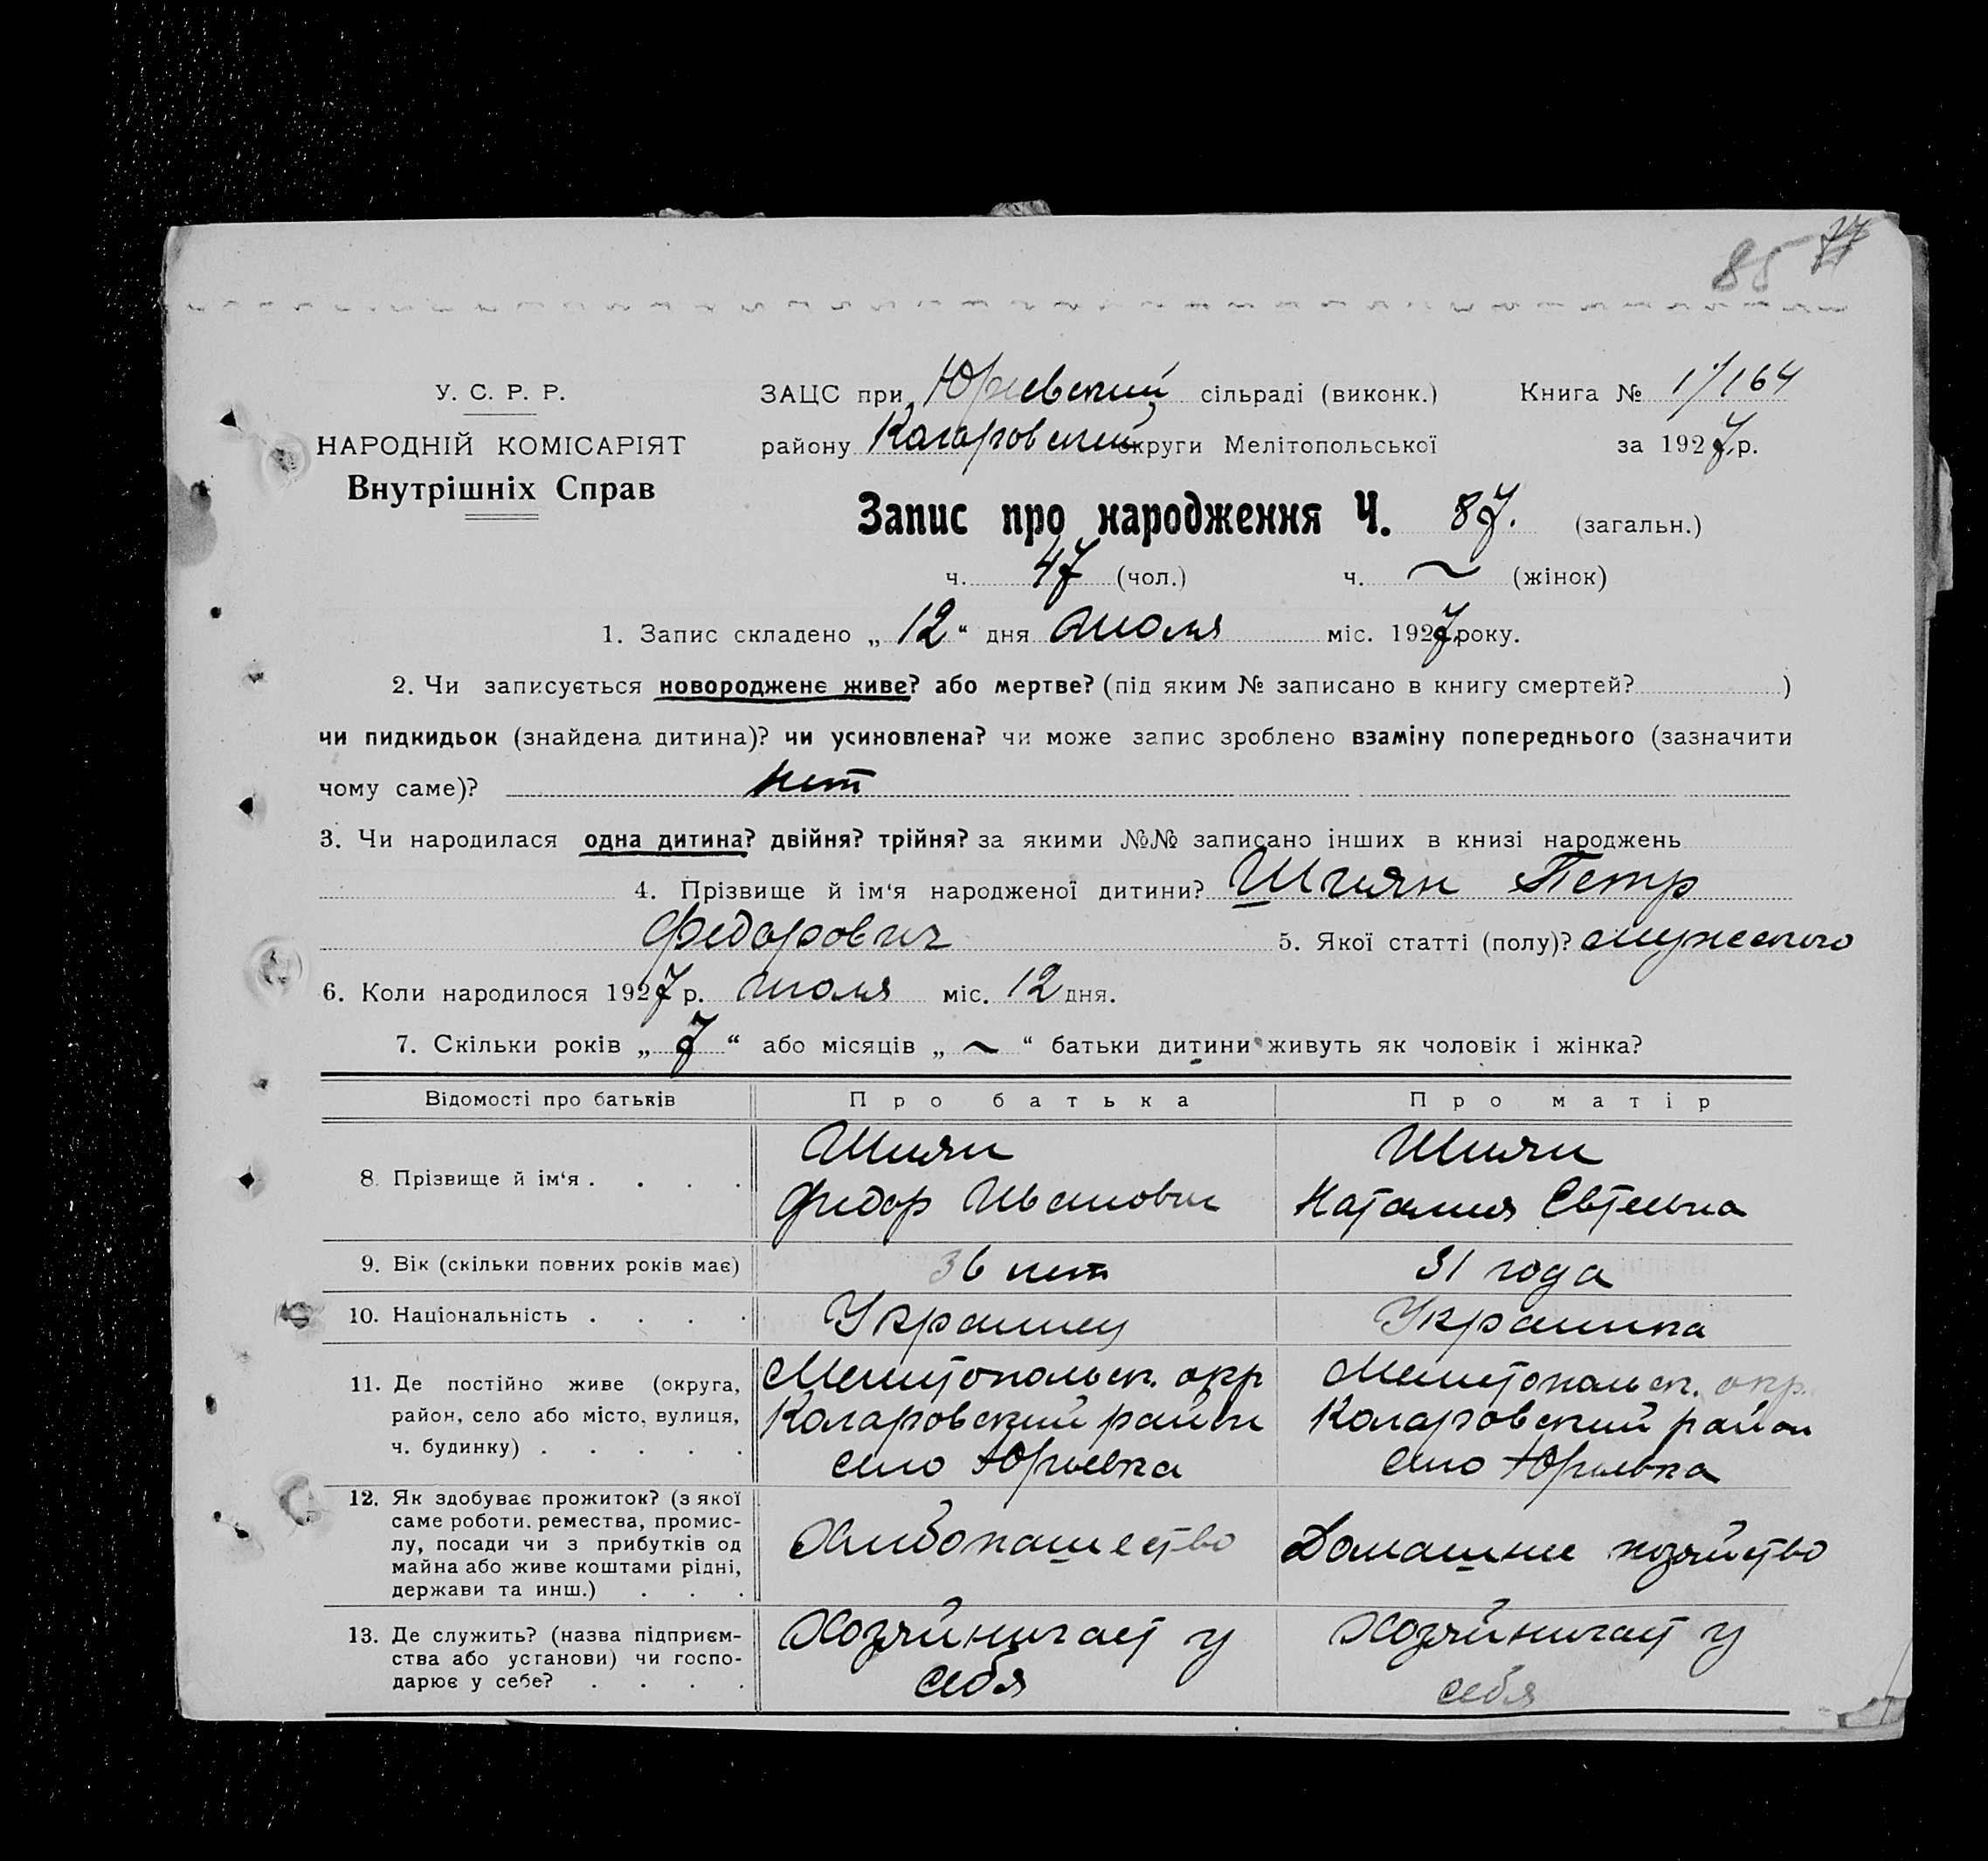 85 77
У. С. Р. Р.
ЗАЦС при Юрьевский сільраді (виконк.) Книга № 1/164
НАРОДНІЙ КОМІСАРІЯТ
району Коларовский округи Мелітопольської за 1927 р.
Внутрішніх Справ
Запис про народження Ч. 87. (загальн.)
ч. 47 (чол.) ч. ~ (жінок)
1. Запис складено „ 12 “ дня июля міс. 1927 року.
2. Чи записується новороджене живе? або мертве? (під яким № записано в книгу смертей? )
чи пидкидьок (знайдена дитина)? чи усиновлена? чи може запис зроблено взаміну попереднього (зазначити
чому саме)? нет
3. Чи народилася одна дитина? двійня? трійня? за якими №№ записано інших в книзі народжень
4. Прізвище й ім‘я народженої дитини? Шиян Петр
Федорович 5. Якої статті (полу)? мужеского
6. Коли народилося 1927 р. июля міс. 12 дня.
7. Скільки років „ 7 “ або місяців „ ~ “ батьки дитини живуть як чоловік і жінка?
Відомості про батьків Про батька Про матір
8. Прізвище й ім‘я . . . .
Шиян
Фидор Иванович
Шиян
Наталия
9. Вік (скільки повних років має) 36 лет 31 года
10. Національність . . . . Украинец Украинка
11. Де постійно живе (округа,
район, село або місто, вулиця,
ч. будинку) . . . . .
Мелитопольск. окр
Коларовский район
село Юрьевка
Мелитопольск. окр.
Коларовский район
село Юрьевка
12. Як здобуває прожиток? (з якої
саме роботи, ремества, промис-
лу, посади чи з прибутків од
майна або живе коштами рідні,
держави та инш.) . . .
Хлибопашество
Домашнее хозяйство
13. Де служить? (назва підприєм-
ства або установи) чи госпо-
дарює у себе? . . . .
Хозяйничает у
себя
Хозяйничает у
себя